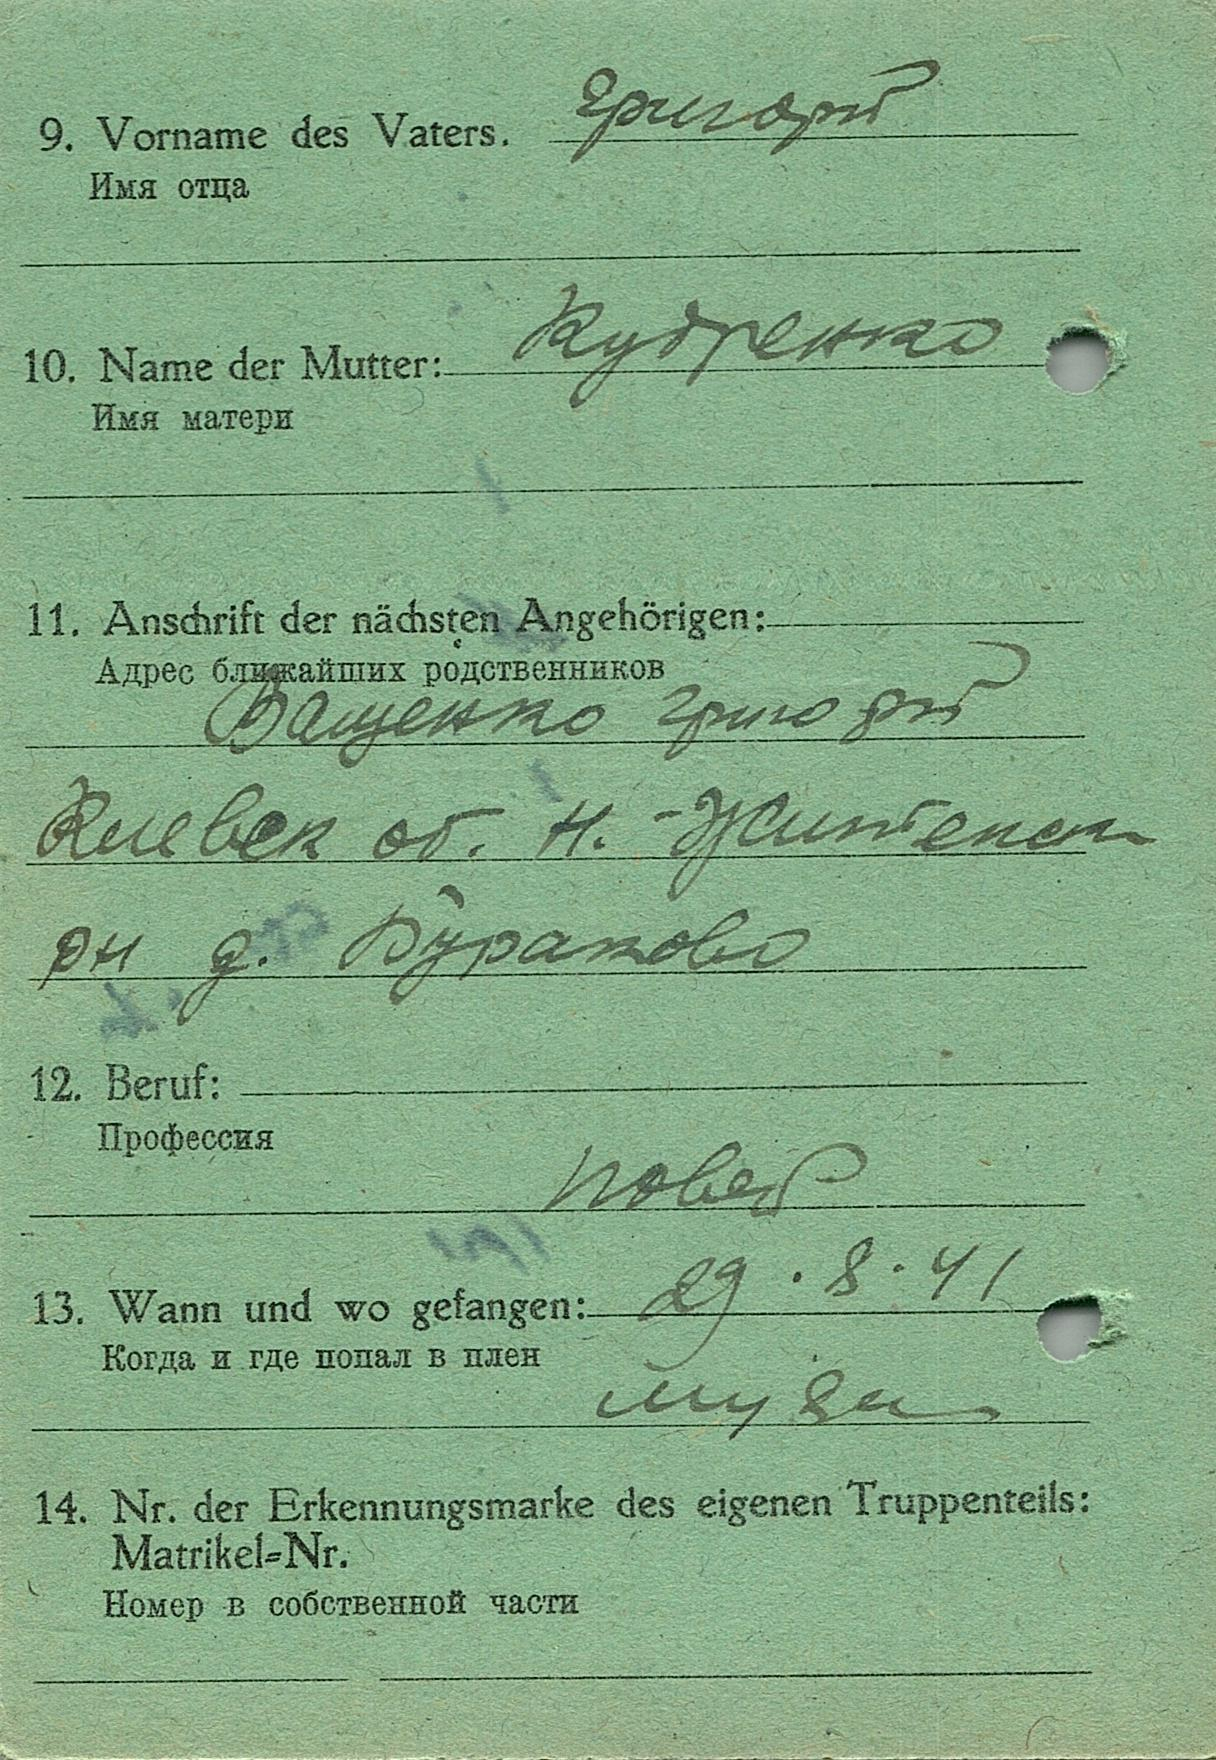 9. Vorname des Vaters. Григорй
Имя отца
10. Name der Mutter: Кудренко
Имя матери
11. Anschrift der nächsten Angehörigen:
Адрес ближайших родственников
Ващенко Григорй
Киевск об. Н.
рн д. Бураково
12. Beruf:
Профессия
13. Wann und wo gefangen: 29.8.41
Когда и где попал в плен
14. Nr. der Erkennungsmarke des eigenen Truppenteils:
Matrikel=Nr.
Номер в собственной части